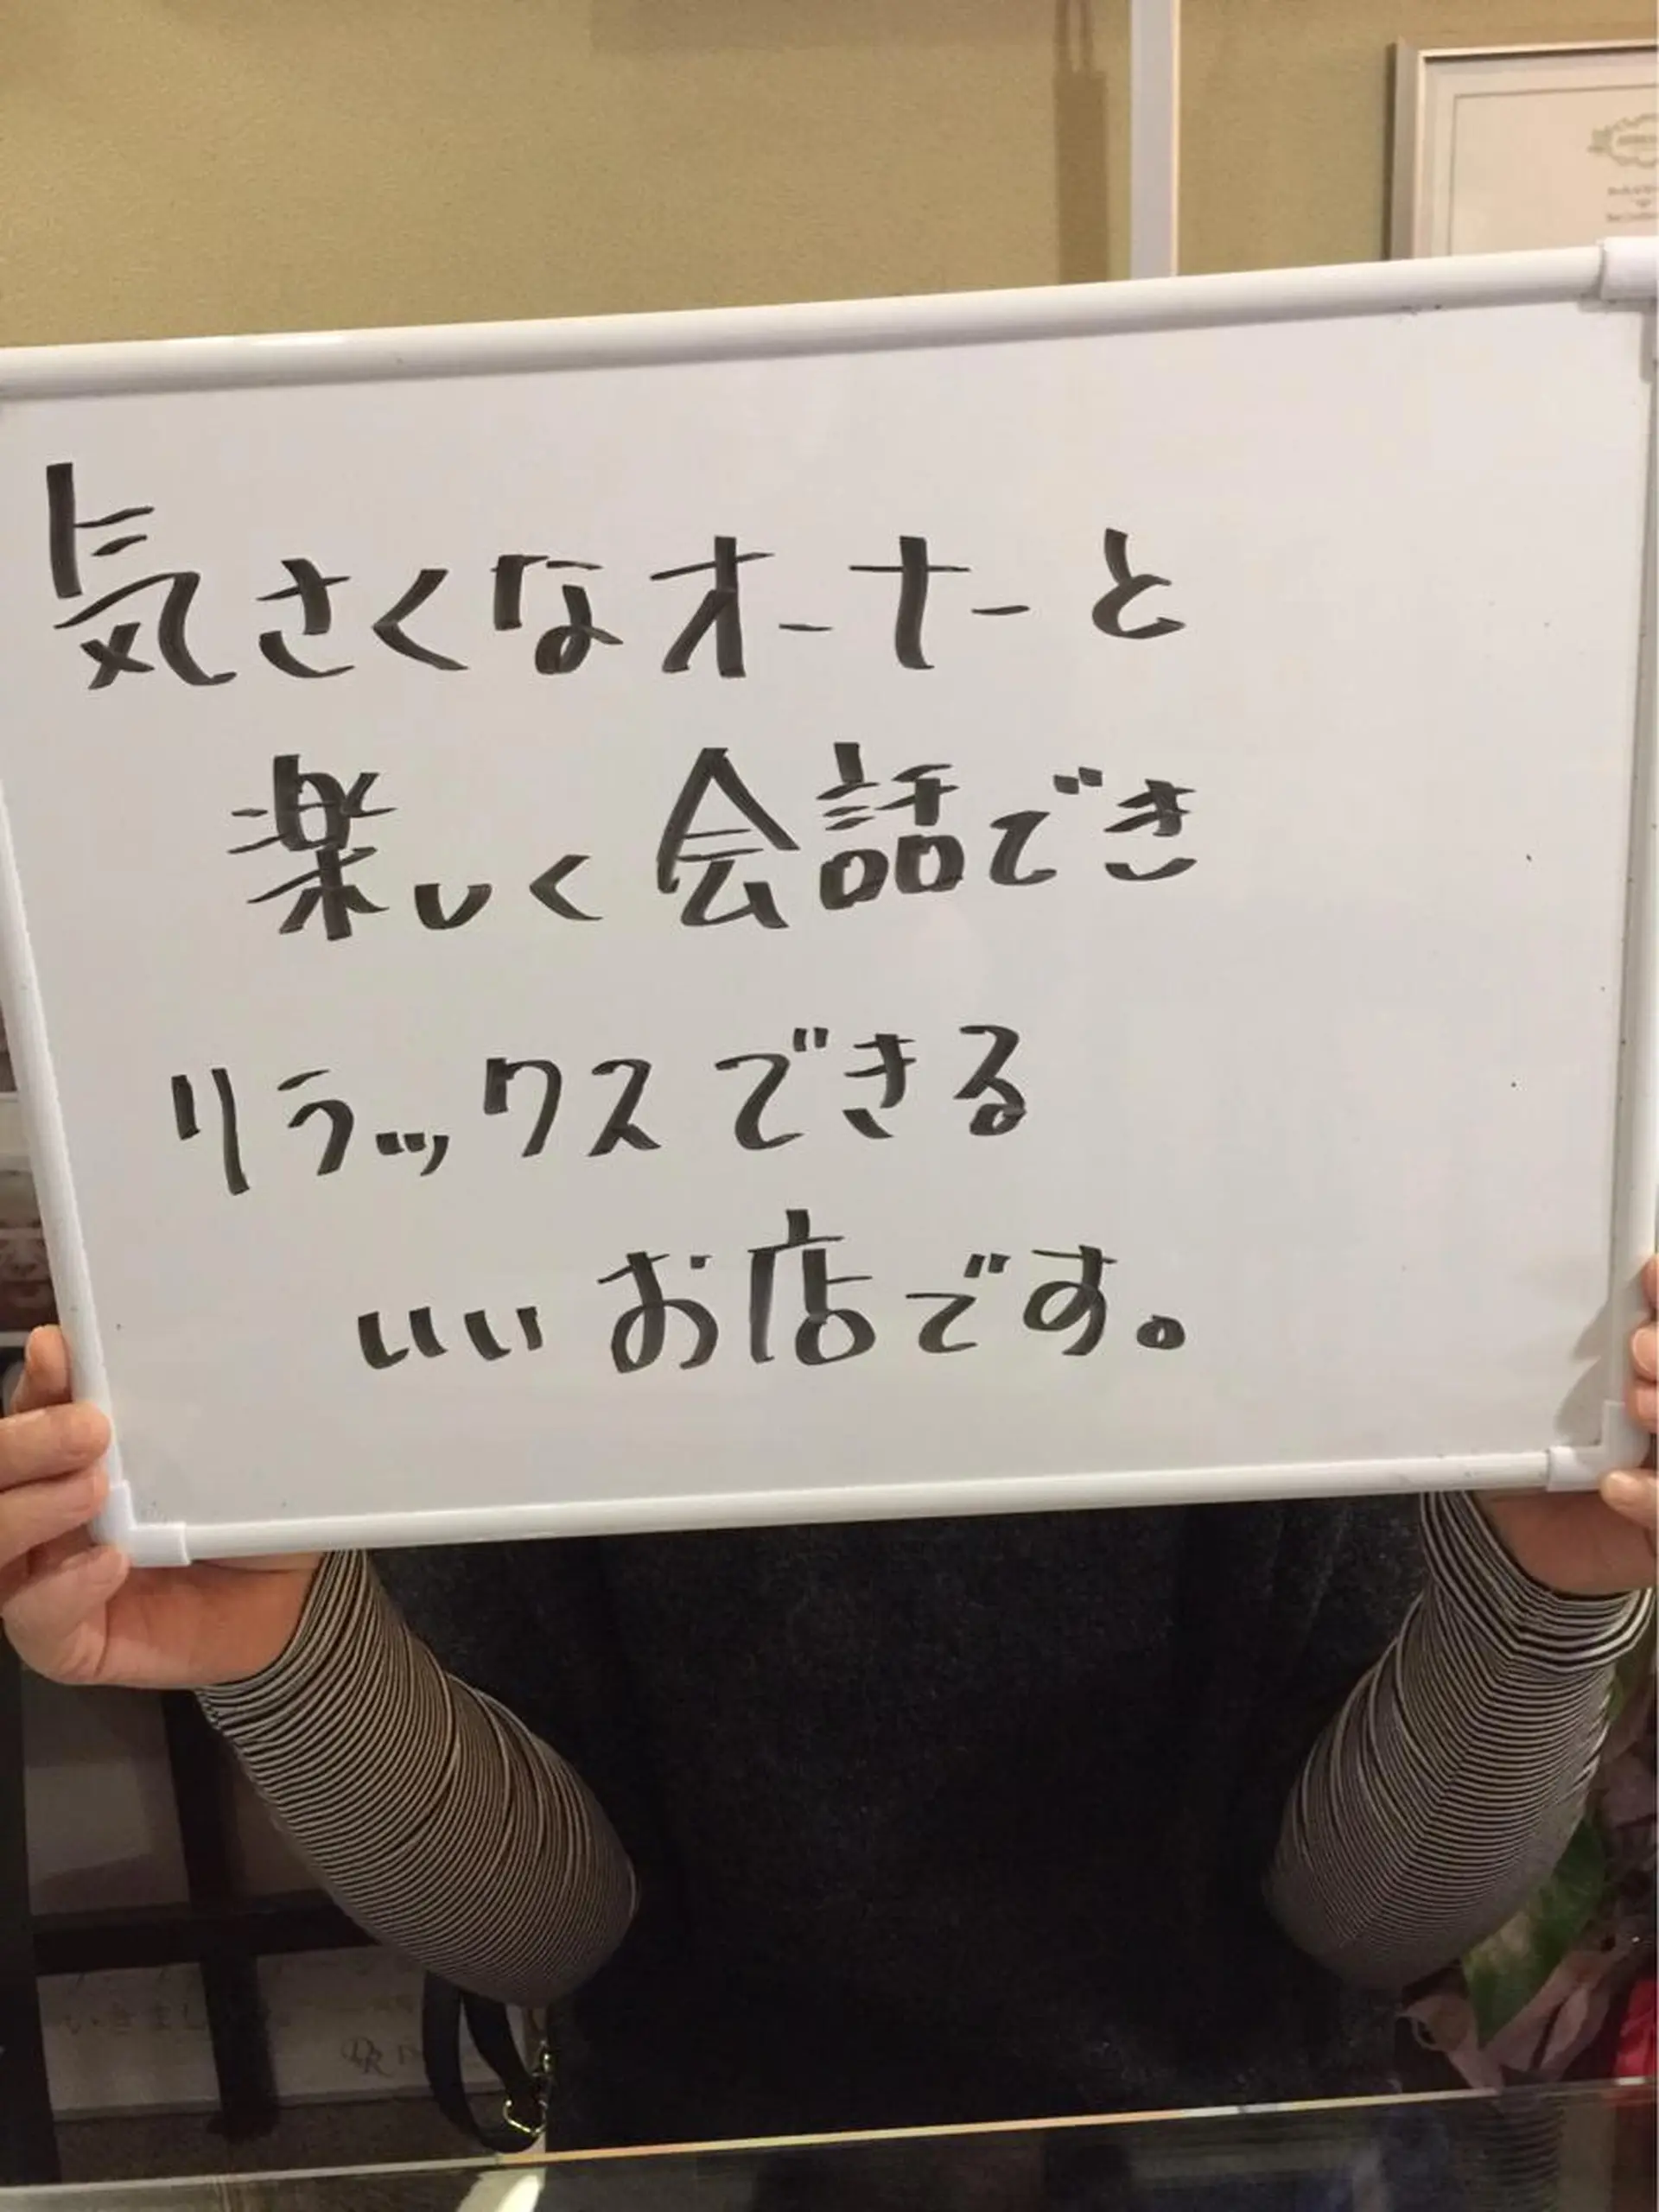 気さくなオーナーと
楽しく会話でき
リラックスできる
いいお店です。